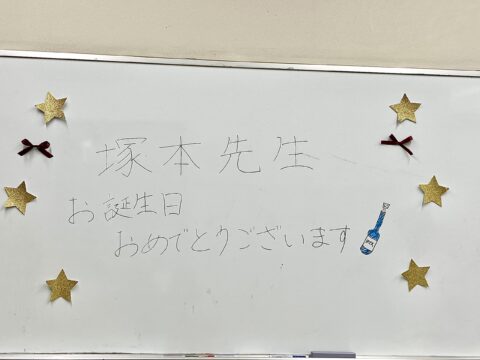 塚本先生
お誕生日
おめでとうございます